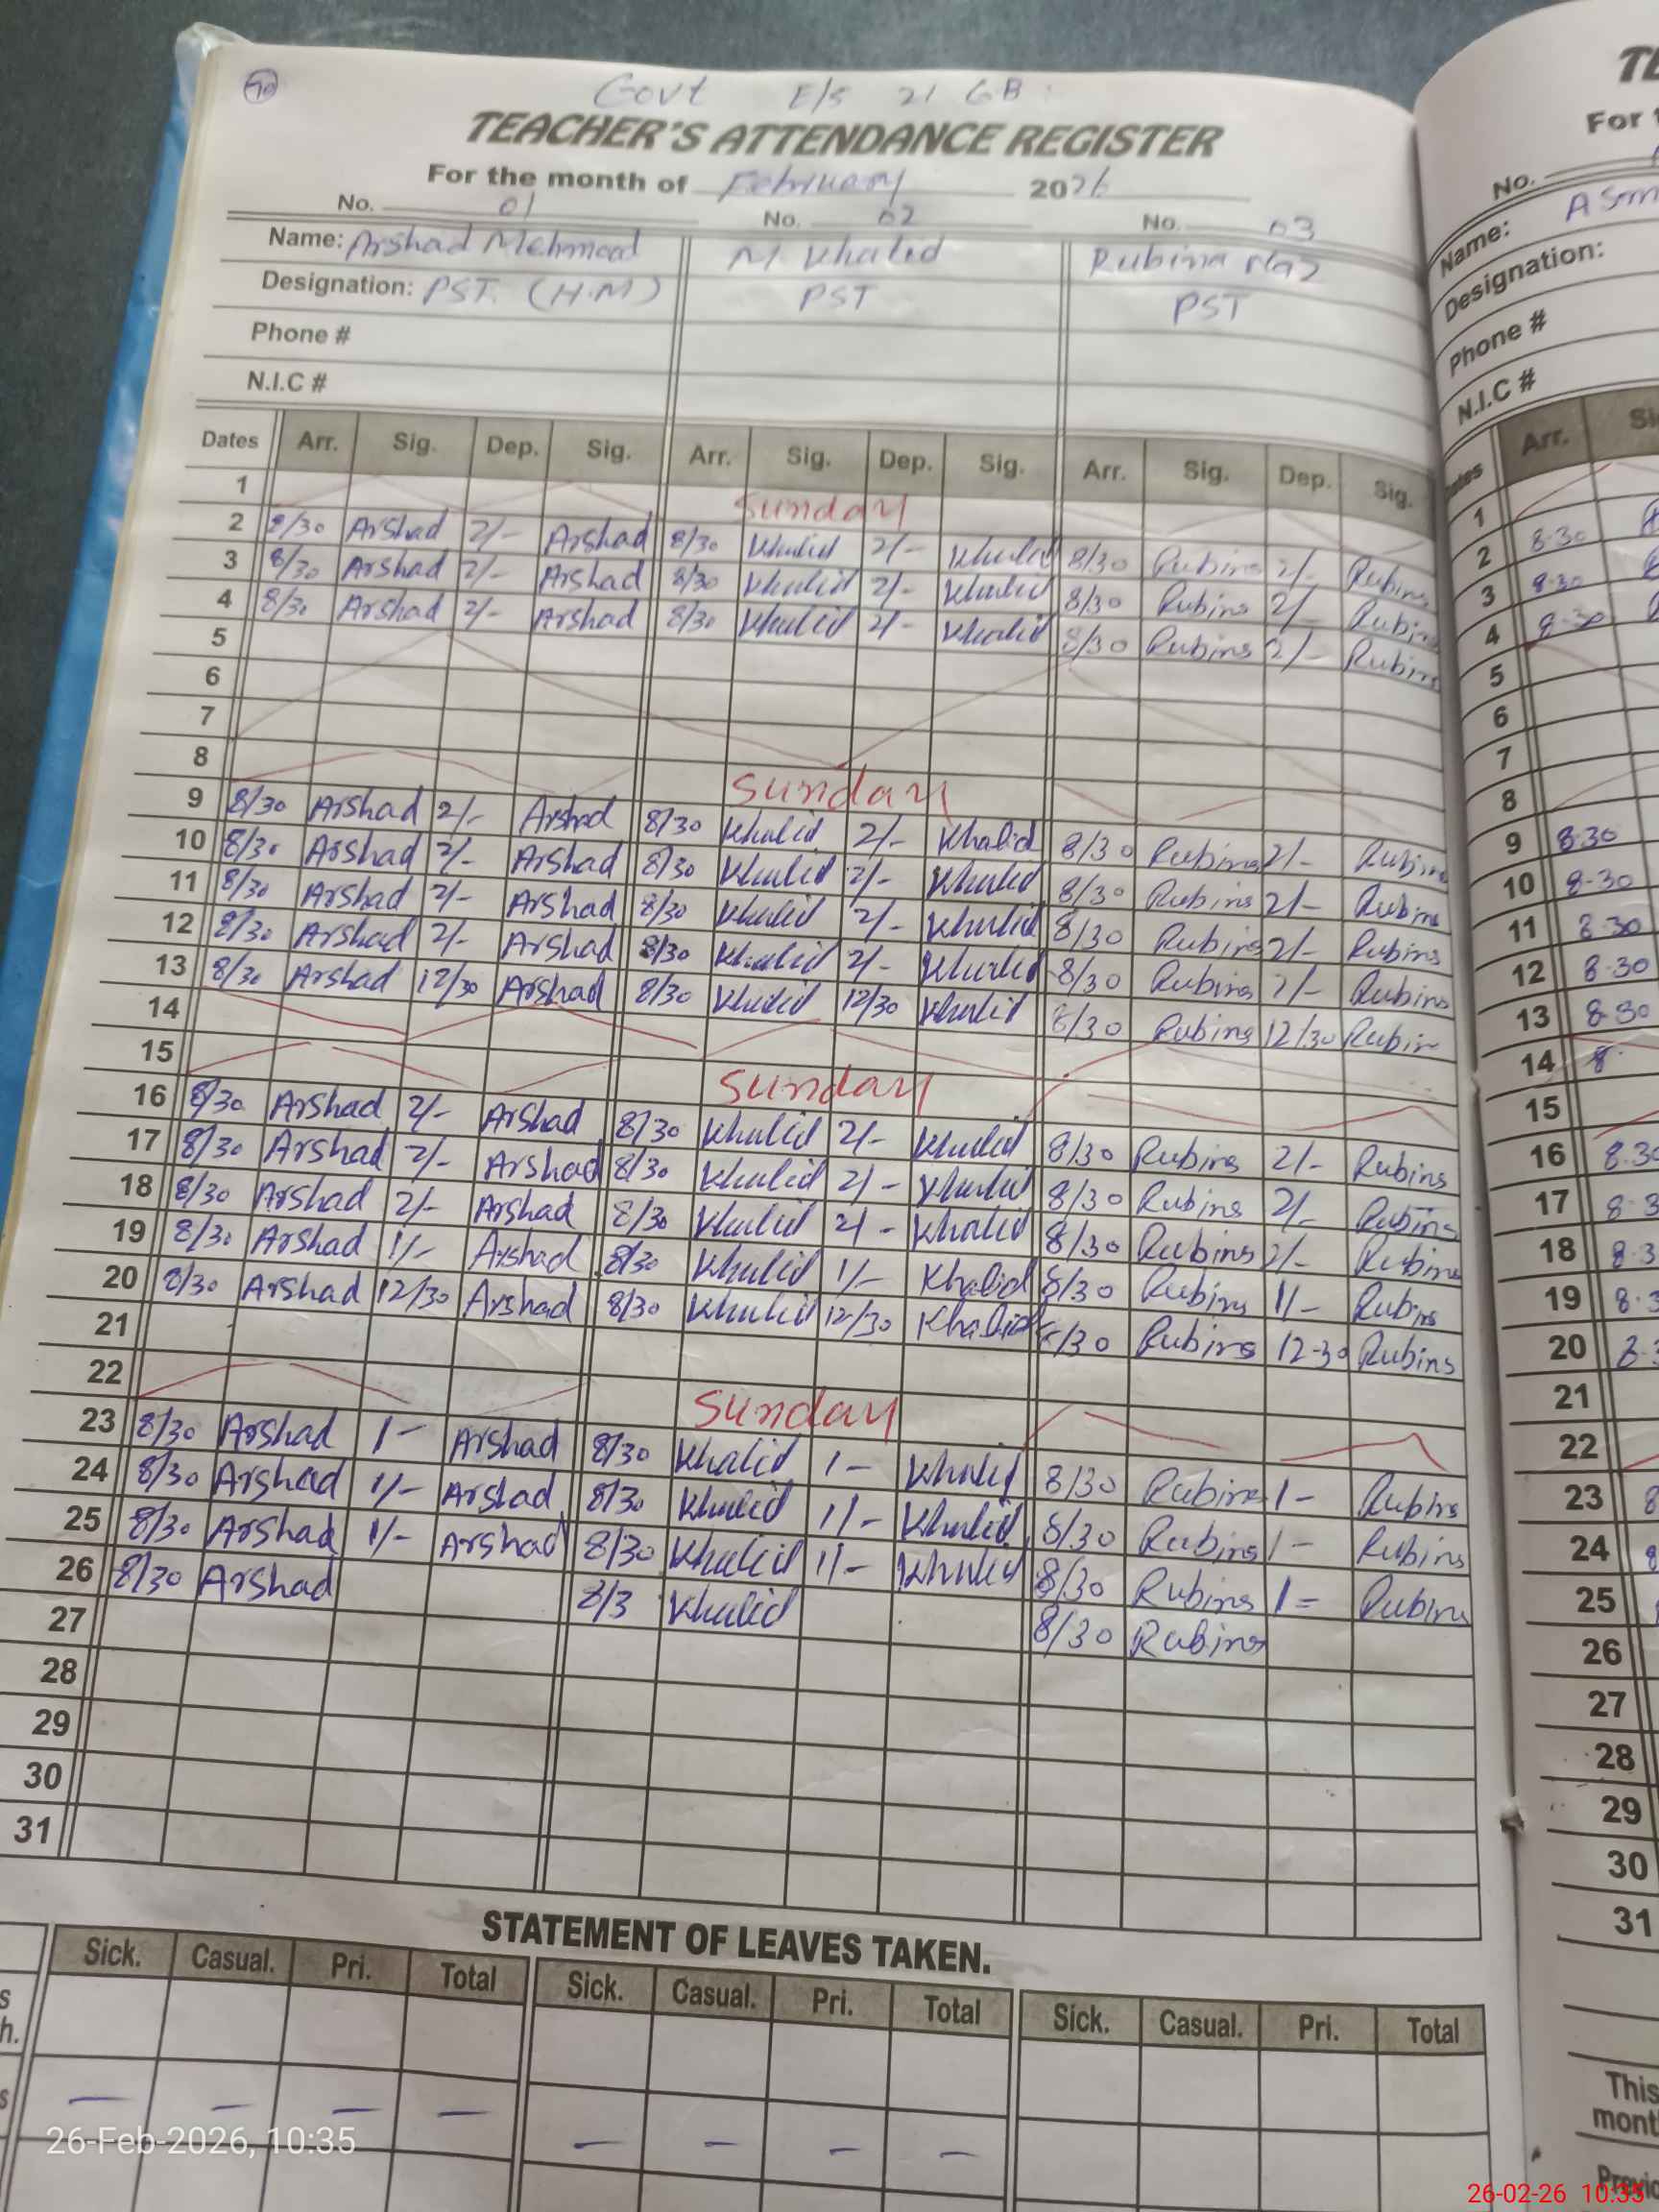 70
Govt E/S 21 GB
TEACHER'S ATTENDANCE REGISTER
For the month of February 2026
No. 01 No. 02 No. 03
Name: Arshad Mehmood M. Khalid Rubina Naz
Designation: PST. (H.M) PST PST
Phone #
N.I.C #
Dates Arr. Sig. Dep. Sig. Arr. Sig. Dep. Sig. Arr. Sig. Dep. Sig.
1 Sunday
2 8/30 Arshad 2/- Arshad 8/30 Khalid 2/- Khalid 8/30 Rubina 2/- Rubina
3 8/30 Arshad 2/- Arshad 8/30 Khalid 2/- Khalid 8/30 Rubina 2/- Rubina
4 8/30 Arshad 2/- Arshad 8/30 Khalid 2/- Khalid 8/30 Rubina 2/- Rubina
5
6
7
8 Sunday
9 8/30 Arshad 2/- Arshad 8/30 Khalid 2/- Khalid 8/30 Rubina 2/- Rubina
10 8/30 Arshad 2/- Arshad 8/30 Khalid 2/- Khalid 8/30 Rubina 2/- Rubina
11 8/30 Arshad 2/- Arshad 8/30 Khalid 2/- Khalid 8/30 Rubina 2/- Rubina
12 8/30 Arshad 2/- Arshad 8/30 Khalid 2/- Khalid 8/30 Rubina 2/- Rubina
13 8/30 Arshad 12/30 Arshad 8/30 Khalid 12/30 Khalid 8/30 Rubina 12/30 Rubina
14
15 Sunday
16 8/30 Arshad 2/- Arshad 8/30 Khalid 2/- Khalid 8/30 Rubina 2/- Rubina
17 8/30 Arshad 2/- Arshad 8/30 Khalid 2/- Khalid 8/30 Rubina 2/- Rubina
18 8/30 Arshad 2/- Arshad 8/30 Khalid 2/- Khalid 8/30 Rubina 2/- Rubina
19 8/30 Arshad 1/- Arshad 8/30 Khalid 1/- Khalid 8/30 Rubina 1/- Rubina
20 8/30 Arshad 12/30 Arshad 8/30 Khalid 12/30 Khalid 8/30 Rubina 12-30 Rubina
21
22 Sunday
23 8/30 Arshad 1- Arshad 8/30 Khalid 1- Khalid 8/30 Rubina 1- Rubina
24 8/30 Arshad 1/- Arshad 8/30 Khalid 1/- Khalid 8/30 Rubina 1- Rubina
25 8/30 Arshad 1/- Arshad 8/30 Khalid 1/- Khalid 8/30 Rubina 1= Rubina
26 8/30 Arshad 8/3 Khalid 8/30 Rubina
27
28
29
30
31
STATEMENT OF LEAVES TAKEN.
Sick. Casual. Pri. Total Sick. Casual. Pri. Total Sick. Casual. Pri. Total
- - - - - - - -
26-Feb-2026, 10:35
No.
Name:
Designation:
Phone #
N.I.C #
Arr.
1
2 8-30
3 8-30
4 8-30
5
6
7
8
9 8-30
10 8-30
11 8-30
12 8-30
13 8-30
14 8
15
16 8.30
17 8-3
18 8-3
19 8-3
20 8-3
21
22
23 8
24 8
25
26
27
28
29
30
31
This
mont
26-02-26 10:35